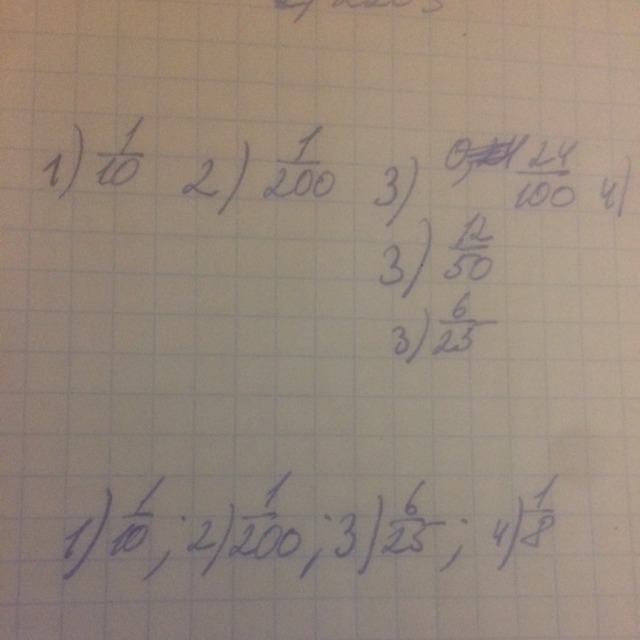 1) 1/10 2) 1/200 3) 24/100 4)
3) 12/50
3) 6/25
1) 1/10; 2) 1/200; 3) 6/25; 4) 1/8